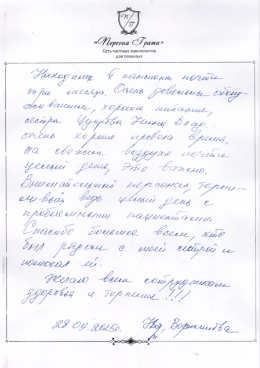 «Персона Грата»
Сеть частных пансионатов
для пожилых
Находилась в пансионате почти
три месяца. Очень довольны обслу-
живанием, хорошее питание,
сестра
очень хорошо провела время,
на свежем воздухе почти
целый день, это важно.
Внимательный персонал, терпе-
ливый, ведь целый день с
проблемными пациентами.
Спасибо большое всем, кто
был рядом с моей сестрой и
помогал ей.
Желаю всем сотрудникам
здоровья и терпения!!!
28.09.2025г.